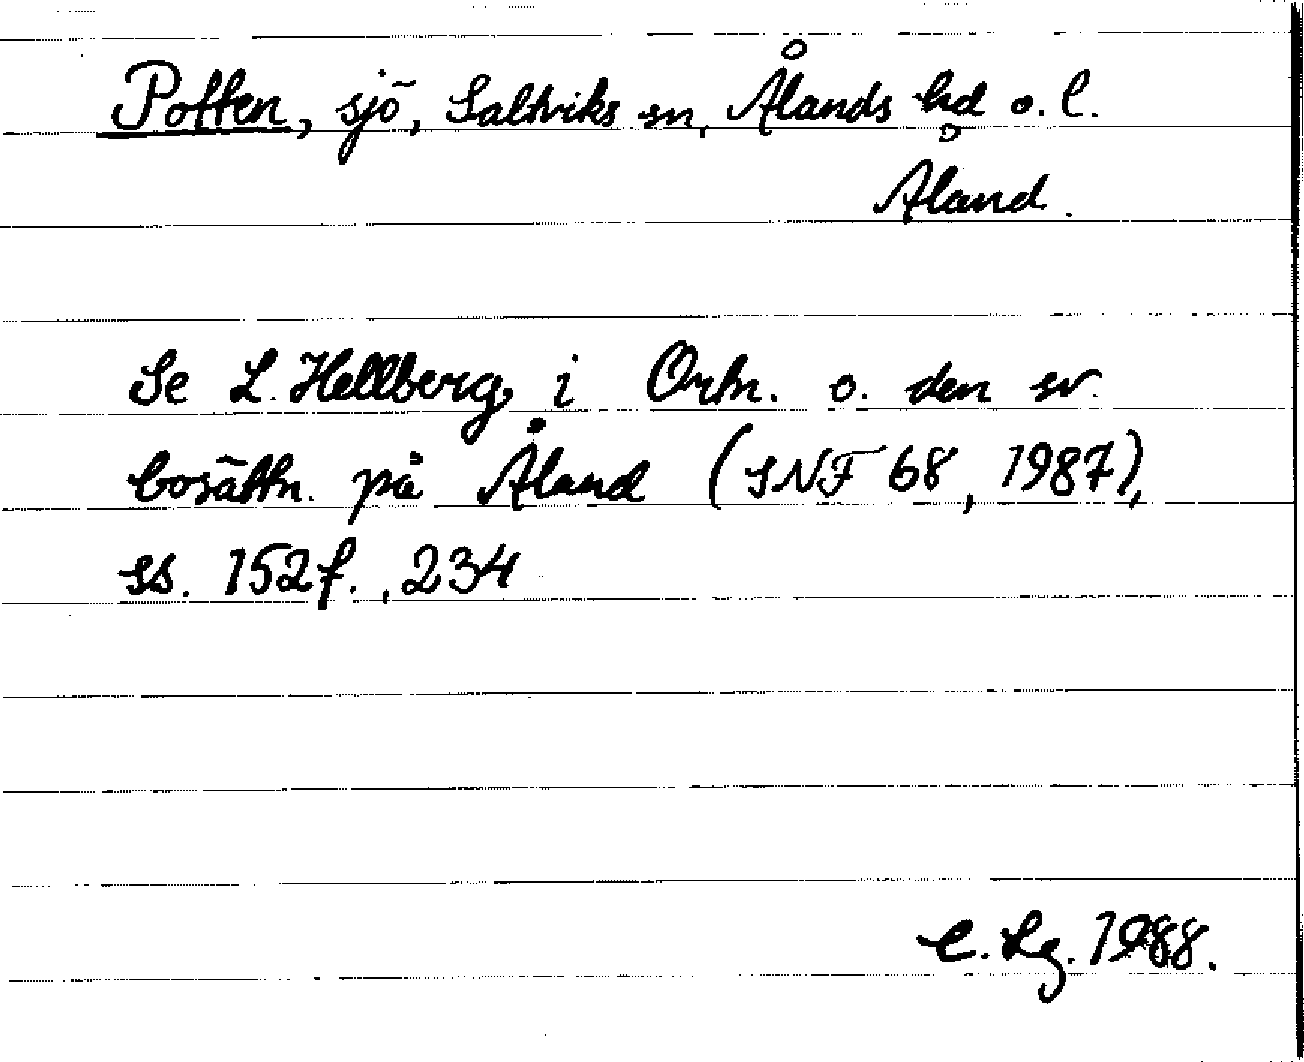 Potten, sjö, Saltviks sn, Ålands hd o. l.
Åland.
Se L. Hellberg, i Ortn. o. den sv.
bosättn. på Åland (SNF 68, 1987),
ss. 152f., 234
C. Lg. 1988.